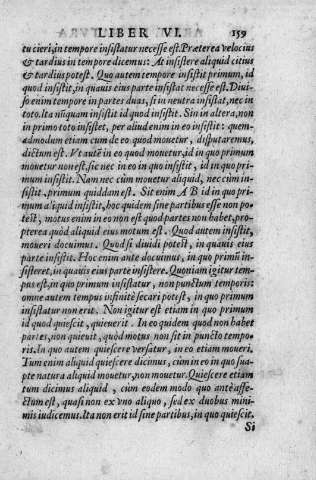 LIBER VI. 159
tu cieri, in tempore insistatur necesse est. Præterea velocius
& tardius in tempore dicemus: At insistere aliquid citius
& tardius potest. Quo autem tempore insistit primum, id
quod insistit, in quauis eius parte insistat necesse est. Diui-
so enim tempore in partes duas, si in neutra insistat, nec in
toto. Ita nũquam insistit id quod insistit. Sin in altera, non
in primo toto insistet, per aliud enim in eo insistit: quem-
admodum etiam cum de eo quod mouetur, disputaremus,
dictum est. Vt autē in eo quod mouetur, id in quo primum
mouetur non est, sic nec in eo in quo insistit, id in quo pri-
mum insistit. Nam nec cùm mouetur aliquid, nec cùm in-
sistit, primum quiddam est. Sit enim A B id in quo pri-
mum aliquid insistit, hoc quidem sine partibus esse non po
test, motus enim in eo non est quod partes non habet, pro-
pterea quòd aliquid eius motum est. Quod autem insistit,
moueri docuimus. Quòd si diuidi potest, in quauis eius
parte insistit. Hoc enim ante docuimus, in quo primũ in-
sisteret, in quauis eius parte insistere. Quoniam igitur tem-
pus est, in quo primum insistatur, non punctum temporis:
omne autem tempus infinitè secari potest, in quo primum
insistatur non erit. Non igitur est etiam in quo primum
id quod quiescit, quieuerit. In eo quidem quod non habet
partes, non quieuit, quòd motus non sit in puncto tempo-
ris. In quo autem quiescere versatur, in eo etiam moueri.
Tum enim aliquid quiescere dicimus, cùm in eo in quo sua-
pte natura aliquid mouetur, non mouetur. Quiescere etiam
tum dicimus aliquid, cùm eodem modo quo antè affe-
ctum est, quasi non ex vno aliquo, sed ex duobus mini-
mis iudicemus. Ita non erit id sine partibus, in quo quiescit.
Si